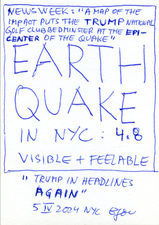 NEWSWEEK: "A MAP OF THE
IMPACT PUTS THE TRUMP NATIONAL
GOLF CLUB BEDMINSTER AT THE EPI-
CENTER OF THE QUAKE"
EARTH
QUAKE
IN NYC: 4.8
VISIBLE + FEELABLE
"TRUMP IN HEADLINES
AGAIN"
5 IV 2024 NYC